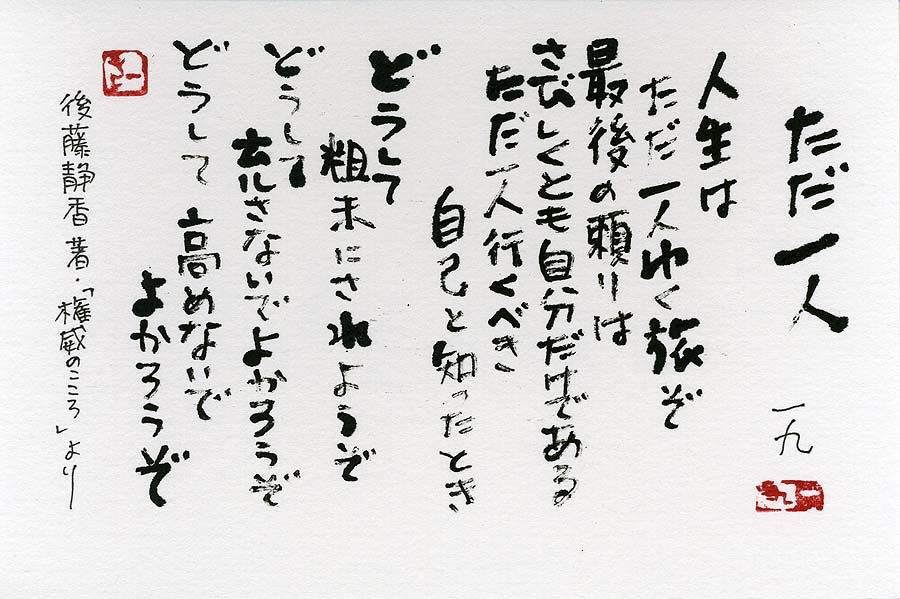 ただ一人
一九
人生は
ただ一人ゆく旅ぞ
最後の頼りは
さびしくとも自分だけである
ただ一人行くべき
自己と知ったとき
どうして
粗末にされようぞ
どうして
充さないでよかろうぞ
どうして高めないで
よかろうぞ
後藤静香著・「権威のこころ」より